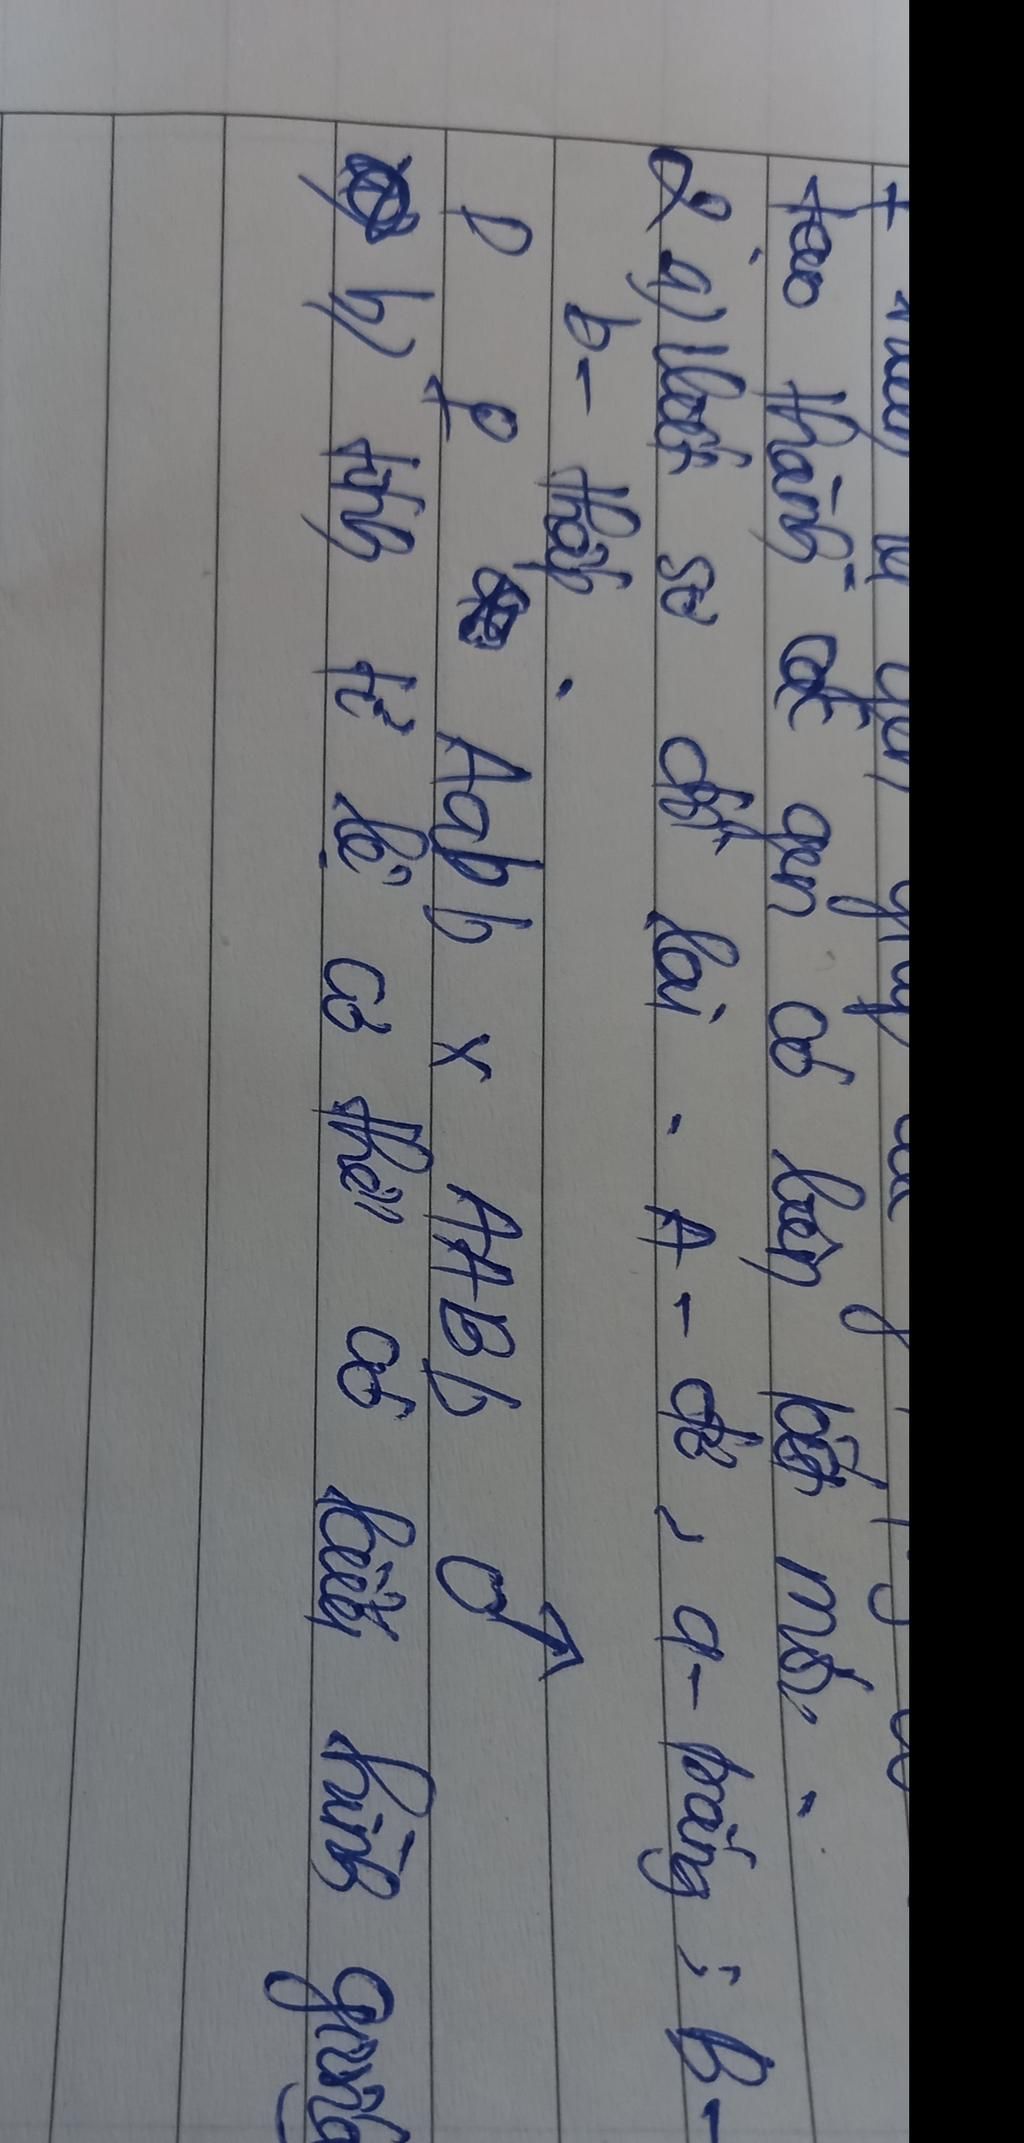 tạo thành các gen có lợi bất mới.
2 a) Viết sơ đồ lai. A - đỏ, a - trắng; B -
b - thấp.
P ♀ Aabb x AABb ♂
b) tính tỉ lệ cơ thể có kiểu hình giống